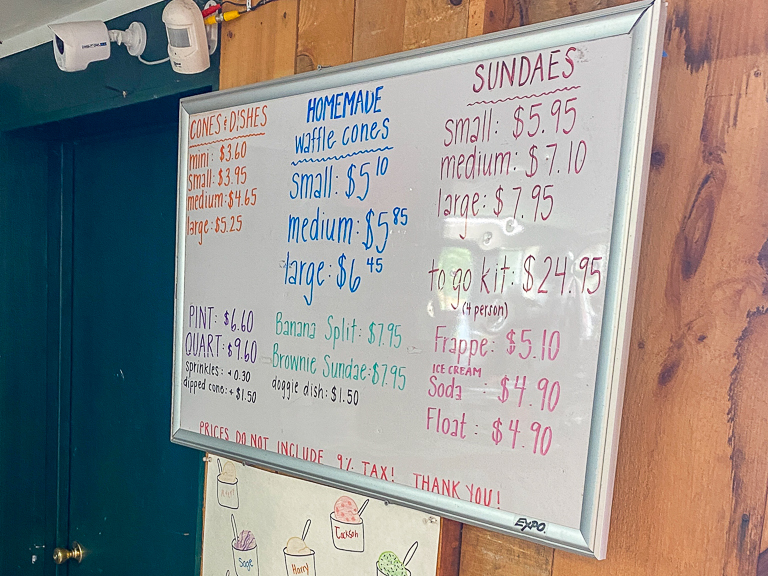 CONES & DISHES
mini: $3.60
small: $3.95
medium: $4.65
large: $5.25
HOMEMADE
waffle cones
small: $5 10
medium: $5 85
large: $6 45
SUNDAES
small: $5.95
medium: $7.10
large: $7.95
to go kit: $24.95
(4 person)
PINT: $6.60
QUART: $9.60
sprinkles: +0.30
dipped cone: +$1.50
Banana Split: $7.95
Brownie Sundae: $7.95
doggie dish: $1.50
Frappe: $5.10
ICE CREAM
Soda : $4.90
Float: $4.90
PRICES DO NOT INCLUDE 9% TAX! THANK YOU!
EXPO
Jackson
Sage
Harry